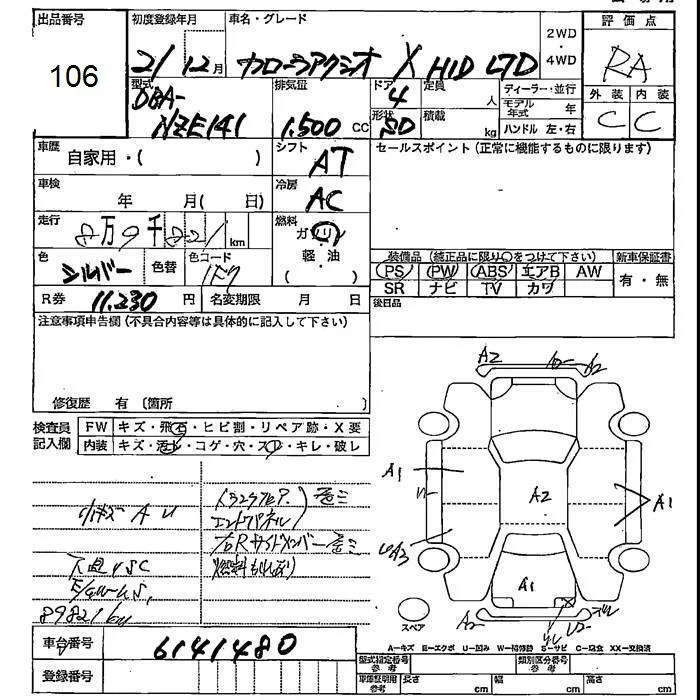 出品番号 初度登録年月 車名・グレード 2WD・4WD 評価点
106 21/12月 カローラアクシオ X HID LTD RA
型式 排気量 ドア 定員 人 ディーラー・並行 外装 内装
DBA- 4 モデル年式 年 C C
NZE141 1.500 cc 形状 SD 積載 kg ハンドル 左・右
車歴 自家用・( ) シフト AT セールスポイント (正常に機能するものに限ります)
車検 年 月( 日) 冷房 AC
走行 8万9千821 km 燃料 ガソリン
色 シルバー 色替 色コード 軽・油 ( )
装備品 (純正品に限り○をつけて下さい) 新車保証書
PS PW ABS エアB AW 有・無
SR ナビ TV カワ
R券 11.230 円 名変期限 月 日 後日品
注意事項申告欄(不具合内容等は具体的に記入して下さい)
修復歴 有 〔箇所 〕
検査員記入欄 FW キズ・飛石・ヒビ割・リペア跡・X要
内装 キズ・汚れ・コゲ・穴・スレ・キレ・破レ
小キズ A U
トランクフロア
エンドパネル
歪ミ
右Rサイドメンバー歪ミ
下廻りSC
89821km
A2 A2
A1 A2 A1
A1
A2
スペア
A−キズ E−エクボ U−凹み W−補修跡 S−サビ C−腐食 XX−交換済
車台番号 6141480
登録番号
型式指定番号 参考 類別区分番号 参考
車庫証明用 参考 長さ cm 幅 cm 高さ cm